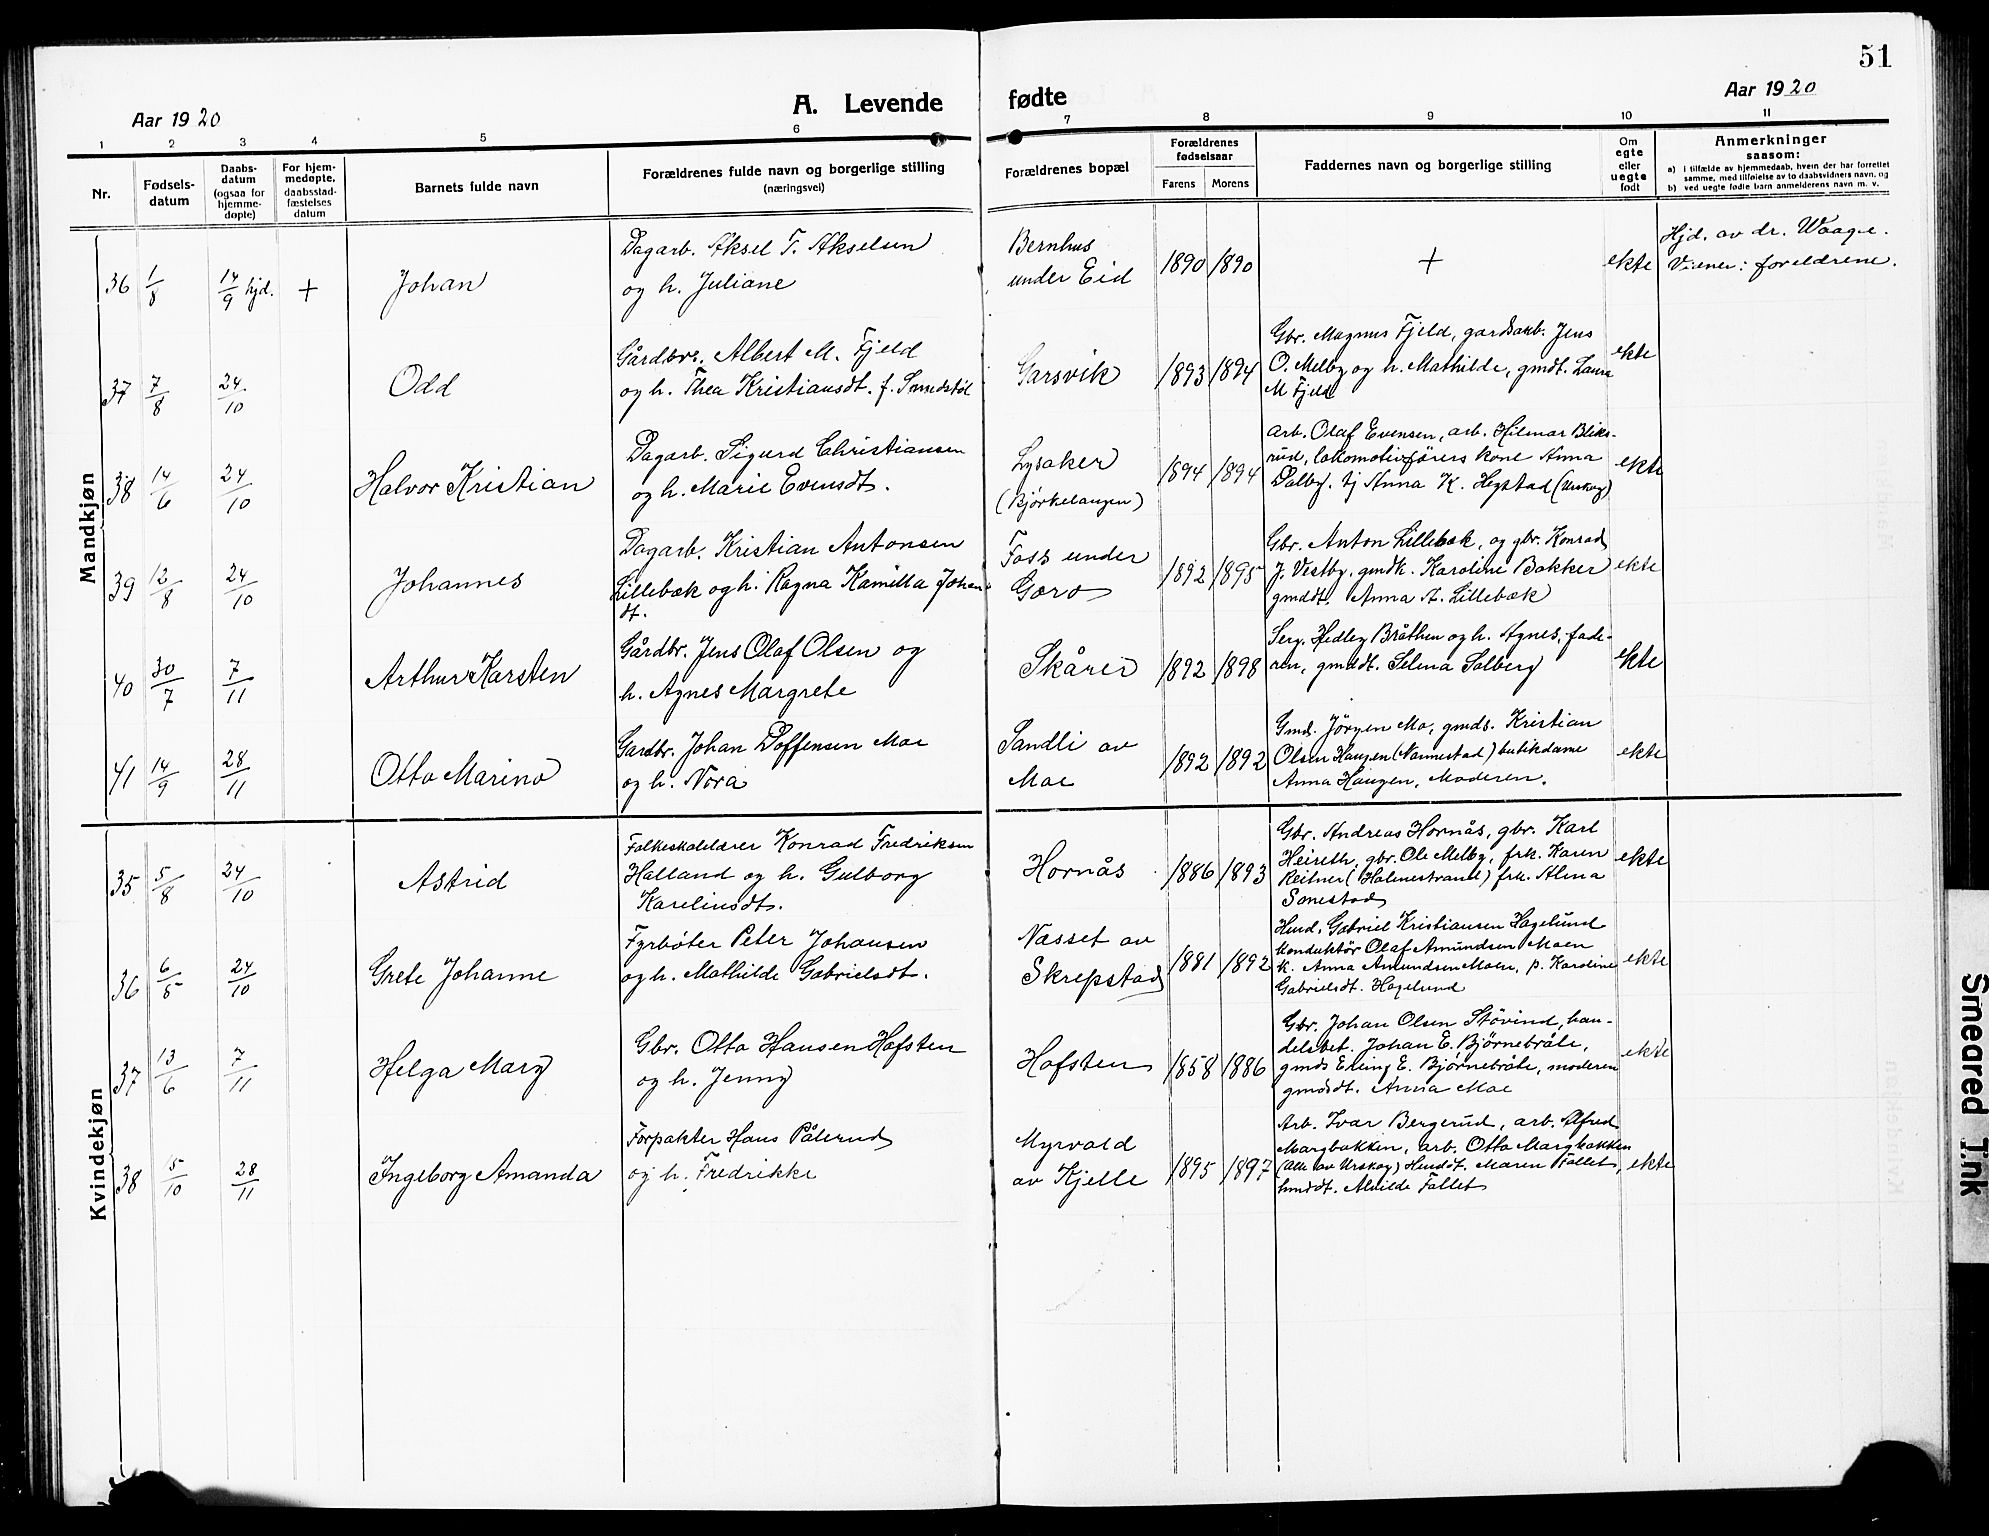 51
Aar 1920
A. Levende
fødte
Aar 1920
1 2 3 4 5 6 7 8 9 10 11
Nr.
Fødsels-
datum
Daabs-
datum
(ogsaa for
hjemme-
døpte)
For hjem-
medøpte,
daabsstad-
fæstelses
datum
Barnets fulde navn
Forældrenes fulde navn og borgerlige stilling
(næringsvei)
Forældrenes bopæl
Forældrenes
fødselsaar
Farens Morens
Faddernes navn og borgerlige stilling
Om
egte
eller
uegte
født
Anmerkninger
saasom:
a) i tilfælde av hjemmedaab, hvem der har forrettet
samme, med tilføielse av to daabsvidners navn, og
b) ved uegte fødte barn anmelderens navn m. v.
Mandkjøn
36 1/8 14/9 hjd. + Johan
Dagarb. Aksel T. Akselsen
og h. Juliane
Bernhus
under Eid
1890 1890
+
ekte
Hjd. av dr. Waage.
Vitner: foreldrene.
37 7/8 24/10 Odd
Gårdbr. Albert M. Fjeld
og h. Thea Kristiansdt. f. Smedstøl
Garsvik
1893 1894
Gbr. Magnus Fjeld, gardsarb. Jens
O. Melby og h. Mathilde, gmdt. Laura
M Fjeld
ekte
38 14/6 24/10 Halvor Kristian
Dagarb. Sigurd Christiansen
og h. Marie Evensdt.
Lysaker
(Bjørkelangen)
1894 1894
Arb. Olaf Evensen, arb. Hilmar Bliks-
rud, lokomotivførers kone Anna
Dalby, tj Anna K. Hegstad (Urskog)
ekte
39 12/8 24/10 Johannes
Dagarb. Kristian Antonsen
Lillebæk og h. Ragna Kamilla Johan
dt.
Foss under
Goro
1892 1895
Gbr. Anton Lillebæk, og gbr. Konrad
J. Vestby, gmdk. Karoline Bakker
gmddt. Anna A. Lillebæk
ekte
40 30/7 7/11 Arthur Karsten
Gårdbr. Jens Olaf Olsen og
h. Agnes Margrete
Skårer
1892 1898
Serg. Hedley Bråthen og h. Agnes, fade-
ren, gmddt. Selma Solberg
ekte
41 14/9 28/11 Otto Marino
Gardbr. Johan Doffensen Moe
og h. Nora
Sandli av
Moe
1892 1892
Gmds. Jörgen Mo, gmds. Kristian
Olsen Haugen (Nannestad) butikdame
Anna Haugen, Moderen.
ekte
Kvindekjøn
35 5/8 24/10 Astrid
Folkeskolelærer Konrad Fredriksen
Halland og h. Gulborg
Karelinsdt.
Hornås
1886 1893
Gbr. Andreas Hornås, gbr. Karl
Heireth, gbr. Ole Melby, frk. Karen
Reitner (Holmestrand) frk. Alma
Sonestad
ekte
36 6/5 24/10 Grete Johanne
Fyrbøter Peter Johansen
og h. Mathilde Gabrielsdt.
Næsset av
Skrepstad
1881 1892
Hmd. Gabriel Kristiansen Hagelund
konduktör Olaf Amundsen Moen
k. Anna Amundsen Moen, p. Karoline
Gabrielsdt. Hagelund
ekte
37 13/6 7/11 Helga Mary
Gbr. Otto Hansen Hofsten
og h. Jenny
Hofsten
1858 1886
Gbr. Johan Olsen Støvind, han-
delsbet. Johan E. Bjørnebråte,
gmds Erling E. Bjørnebråte, moderen
gmdsdt. Anna Moe
ekte
38 15/10 28/11 Ingeborg Amanda
Forpakter Hans Pålerud
og h. Fredrikke
Myrvold
av Kjelle
1895 1897
Arb. Ivar Bergerud, arb. Alfred
Margbakken, arb. Otto Margbakken
(alle av Urskog) Hmddt. Maren Fallet,
hmddt. Alvilde Fallet
ekte
Smeared Ink